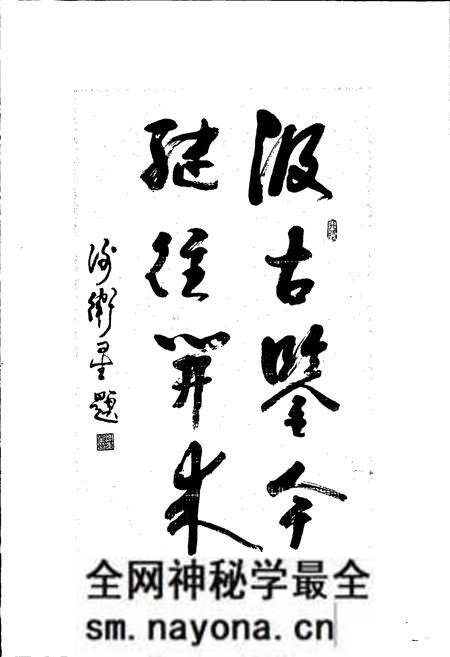 汲古鑒今
继往開来
衛星題
全网神秘学最全
sm.nayona.cn